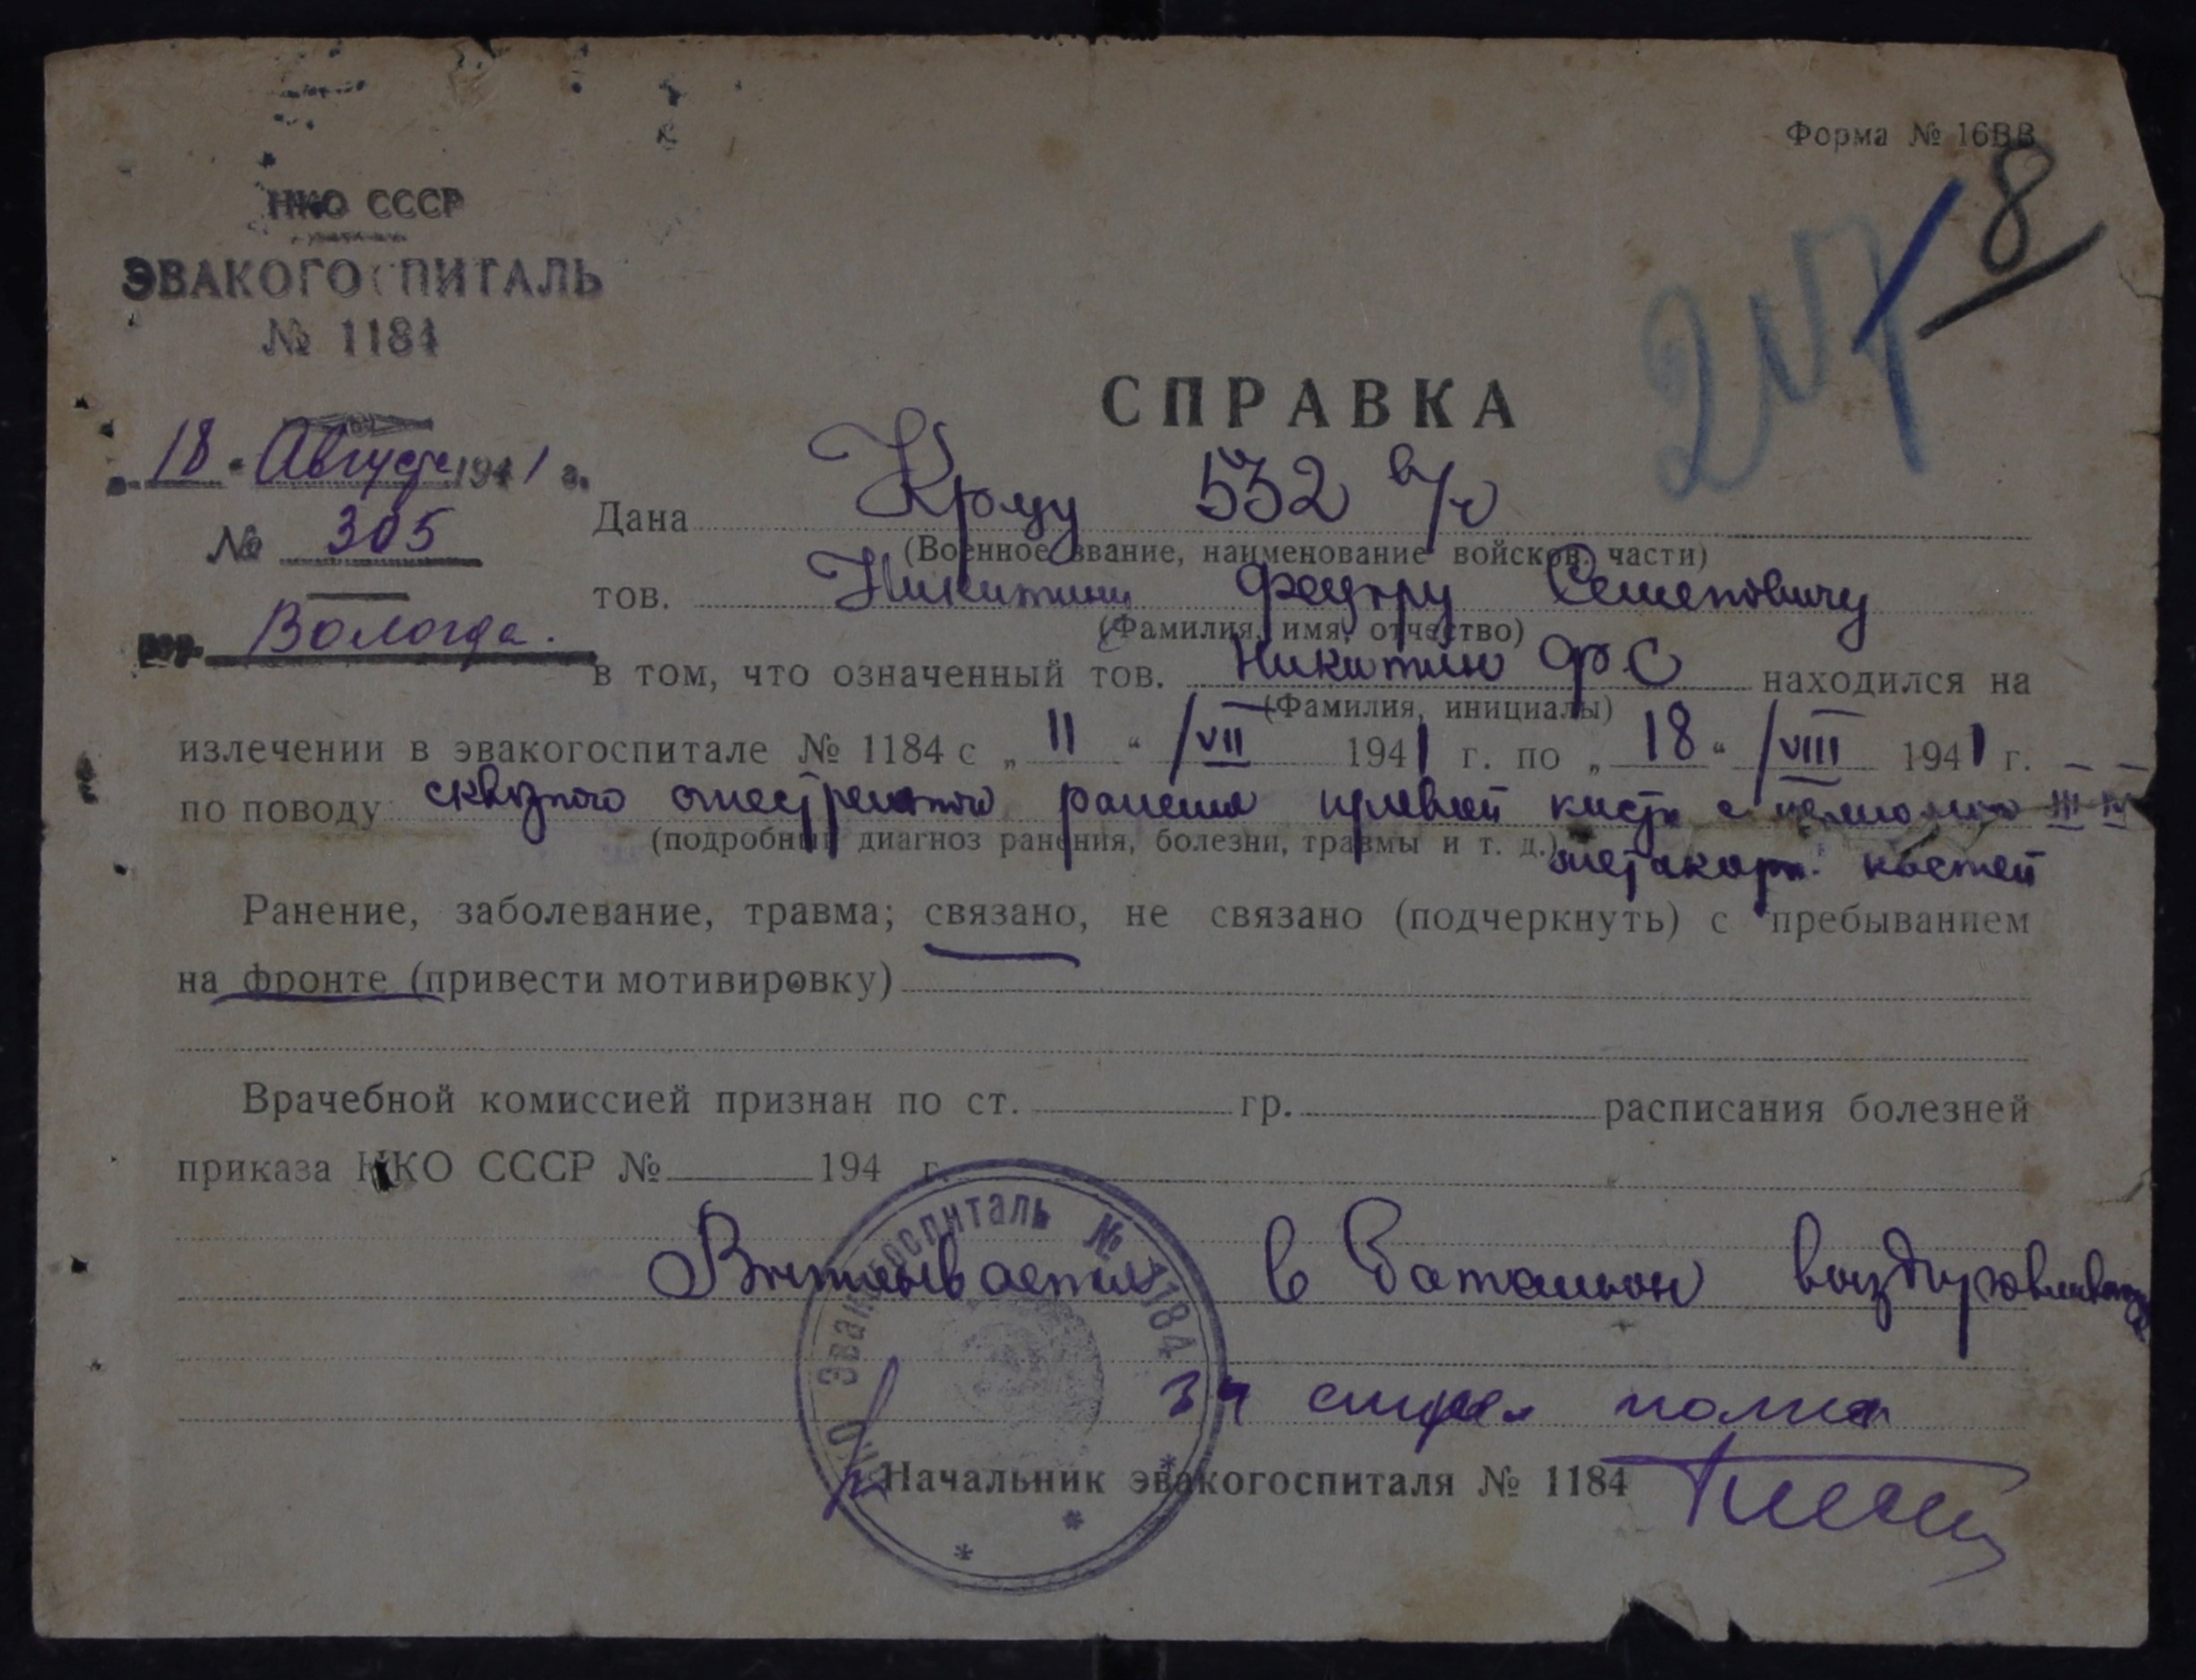 Форма № 16ВВ
8
НКО СССР
ЭВАКОГОСПИТАЛЬ
№ 1184
СПРАВКА
18 Август 1941 г.
№ 305
гор. Вологда.
Дана Крцу 532 в/ч
(Военное звание, наименование войсков. части)
тов. Никитину Федору Семеновичу
(Фамилия, имя, отчество)
в том, что означенный тов. Никитин Ф.С находился на
(Фамилия, инициалы)
излечении в эвакогоспитале № 1184 с „11“ /VII 1941 г. по „18“ /VIII 1941 г.
по поводу сквозного огнестрельного ранения правой кисти с переломом III IV
(подробный диагноз ранения, болезни, травмы и т. д.)
метакарп. костей
Ранение, заболевание, травма; связано, не связано (подчеркнуть) с пребыванием
на фронте (привести мотивировку)
Врачебной комиссией признан по ст. гр. расписания болезней
приказа НКО СССР № 194 г.
Выписывается в батальон выздоравливающ
34 стрел полка
НКО Эвакогоспиталь № 1184
Начальник эвакогоспиталя № 1184